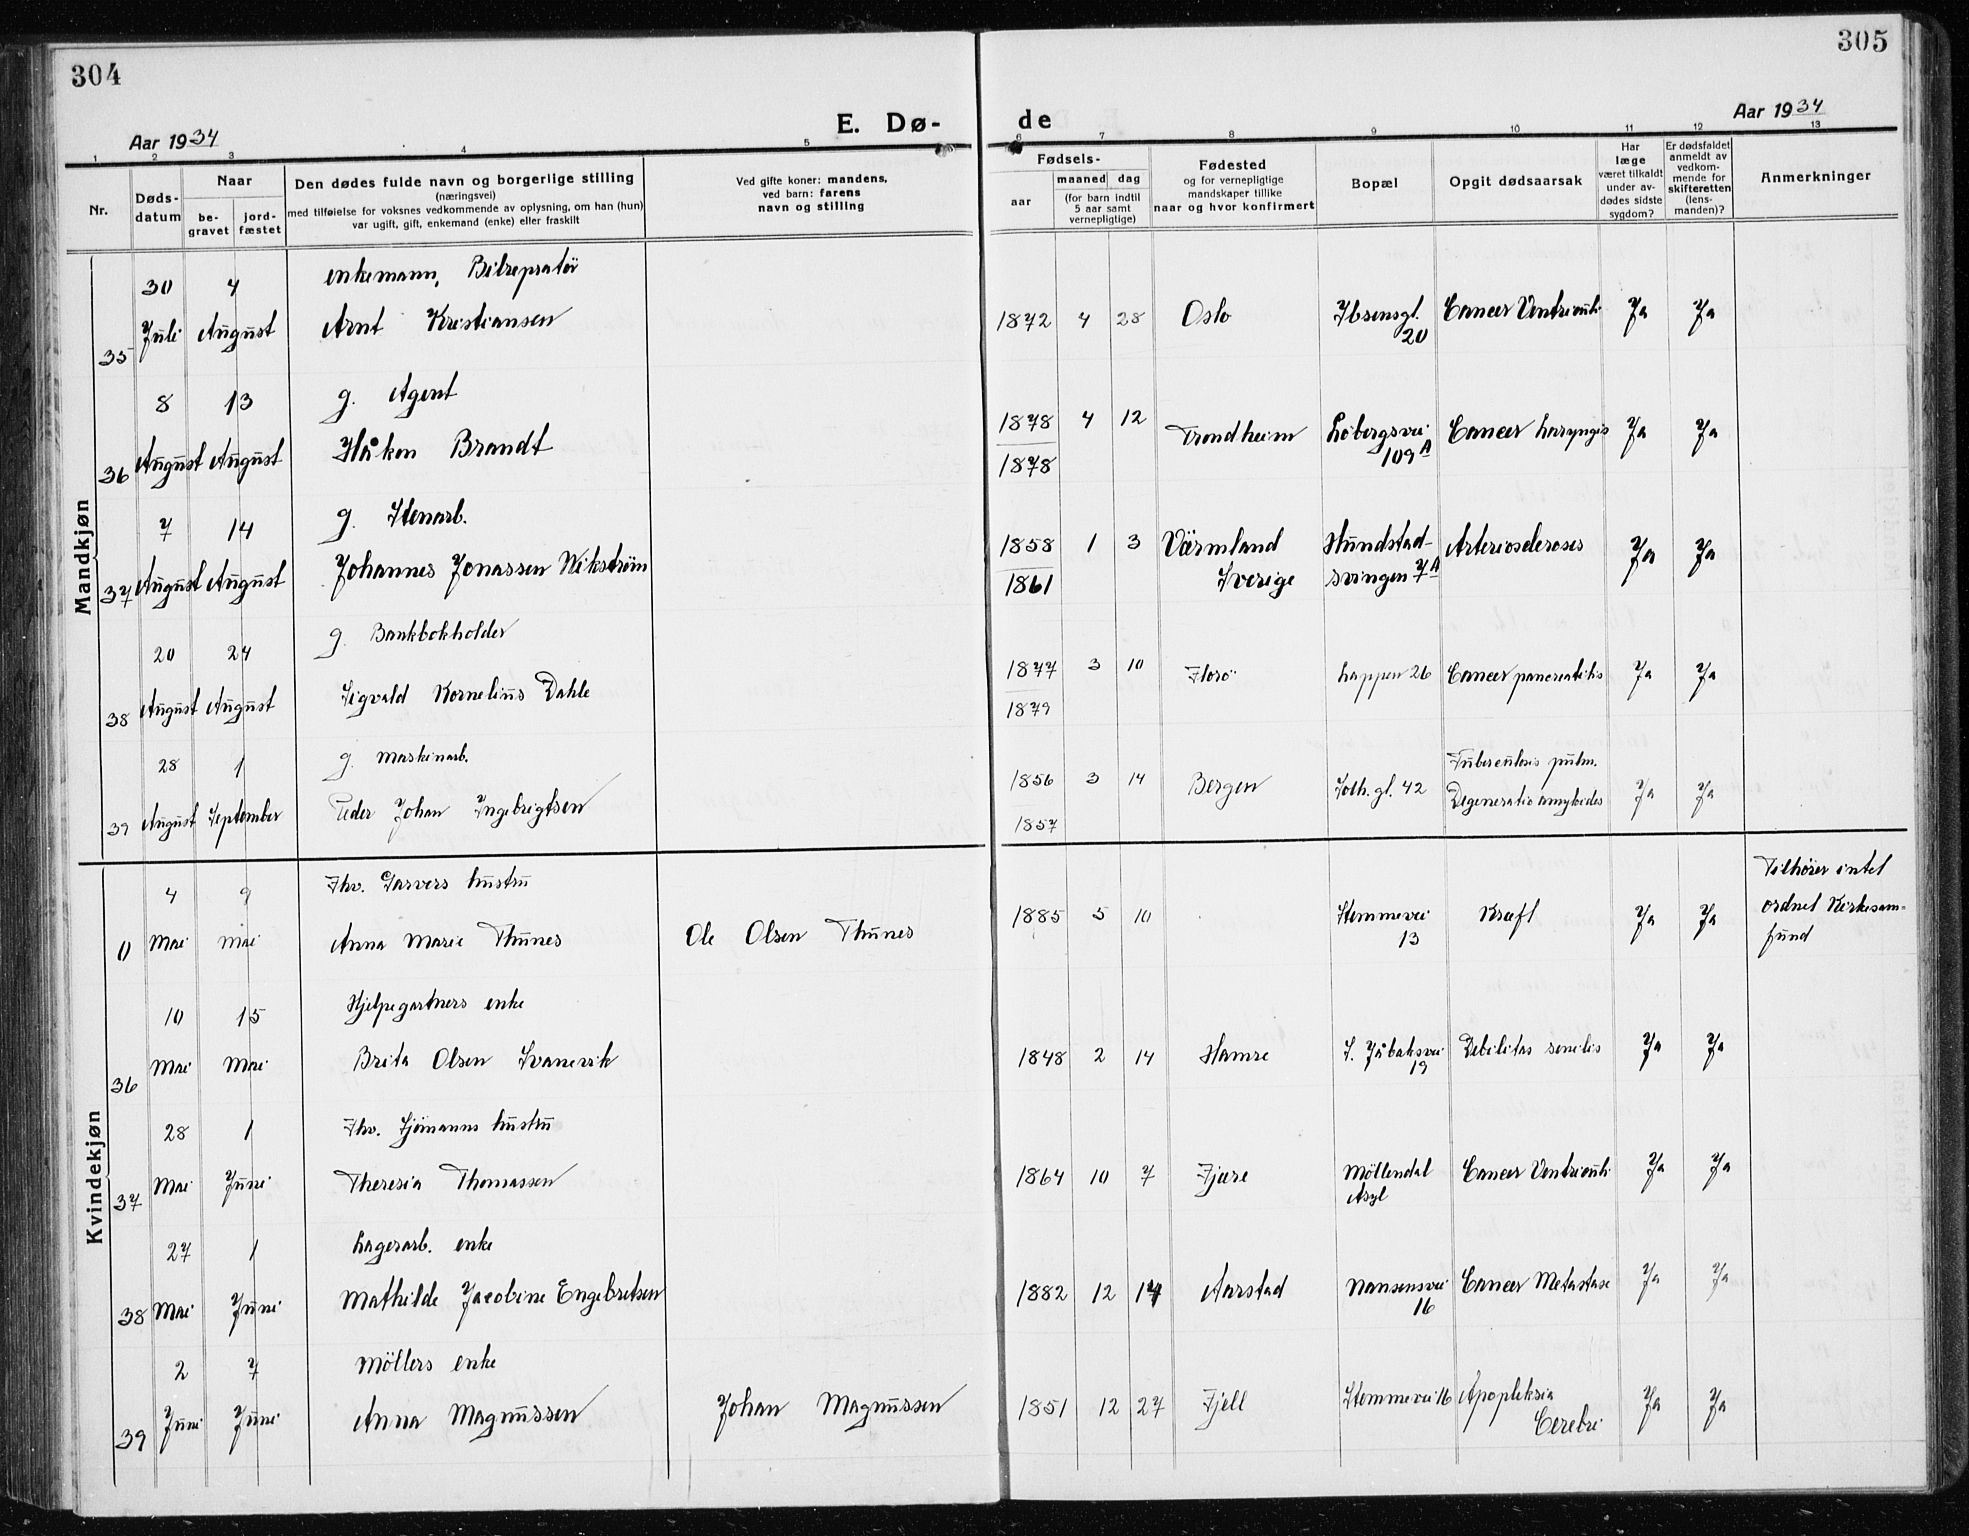 304
305
Aar 1934
E. Dø-
de
Aar 1934
1 2 3 4 5 6 7 8 9 10 11 12 13
Nr.
Døds-
datum
Naar
be-
gravet
jord-
fæstet
Den dødes fulde navn og borgerlige stilling
(næringsvei)
med tilføielse for voksnes vedkommende av oplysning, om han (hun)
var ugift, gift, enkemand (enke) eller fraskilt
Ved gifte koner: mandens,
ved barn: farens
navn og stilling
Fødsels-
aar
maaned dag
(for barn indtil
5 aar samt
vernepligtige)
Fødested
og for vernepligtige
mandskaper tillike
naar og hvor konfirmert
Bopæl
Opgit dødsaarsak
Har
læge
været tilkaldt
under av-
dødes sidste
sygdom?
Er dødsfaldet
anmeldt av
vedkom-
mende for
skifteretten
(lens-
manden)?
Anmerkninger
Mandkjøn
30 4 enkemann, Bilrepratör
35 Juli August Arnt Kristiansen 1872 4 28 Oslo Ibsensgt. Cancer Ventriculi Ja Ja
20
8 13 g. Agent
1878 4 12
36 August August Håkon Brandt Trondheim Løbergsvei Cancer laryngis Ja Ja
109 A
1878
7 14 g. Stenarb.
1858 1 3 Värmland Hundstad- Arteriosclerosis Ja Ja
37 August August Johannes Jonassen Wikström
1861 Sverige svingen 7 A
20 24 g. Bankbokholder
1877 3 10 Florö Lappen 26 Cancer pancreatitis Ja Ja
38 August August Sigvald Kornelius Dahle
1879
28 1 g. Maskinarb.
Tuberculosis pulm.
1856 3 14 Bergen Soth. gt. 42 Degeneratio amyloides Ja Ja
39 August September Peder Johan Ingebrigtsen
1857
Kvindekjøn
4 9 Fhv. Garvers hustru
Tilhörer intet
0 Mai Mai Anna Marie Thunes Ole Olsen Thunes 1885 5 10 Stemmevei Kræft Ja Ja ordnet Kirkesam-
13
fund
10 15 Hjelpegartners enke
36 Mai Mai Brita Olsen Svanevik 1848 2 14 Hamre Debilitas senilis Ja Ja
19
28 1 Fhv. Sjömanns hustru
37 Mai Juni Theresia Thomassen 1864 10 7 Fjære Möllendal Cancer Ventriculi Ja Ja
Asyl
27 1 Lagerarb. enke
38 Mai Juni Mathilde Jacobine Engebretsen 1882 12 14 Aarstad Nansensvei Cancer Metastase Ja Ja
16
2 7 Möllers enke
39 Juni Juni Anna Magnussen Johan Magnussen 1851 12 27 Fjell Stemmevei 16 Apopleksia Ja Ja
Cerebri